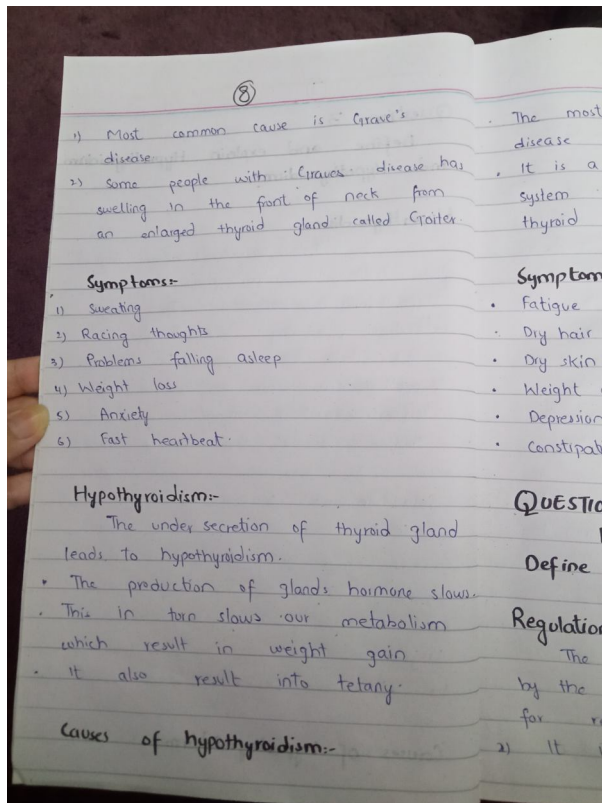 8
1) Most common cause is Grave's
disease
2) Some people with Graves disease has
swelling in the front of neck from
an enlarged thyroid gland called Goiter.
Symptoms:-
1) Sweating
2) Racing thoughts
3) Problems falling asleep
4) Weight loss
5) Anxiety
6) Fast heartbeat.
Hypothyroidism:-
The under secretion of thyroid gland
leads to hypothyroidism.
• The production of glands hormone slows.
• This in torn slows our metabolism
which result in weight gain
• It also result into tetany.
Causes of hypothyroidism:-
• The most
disease
• It is a
system
thyroid
Symptom
• Fatigue
• Dry hair
• Dry skin
• Weight
• Depression
• Constipat
QUESTIO
Define
Regulation
The
by the
for
2) It